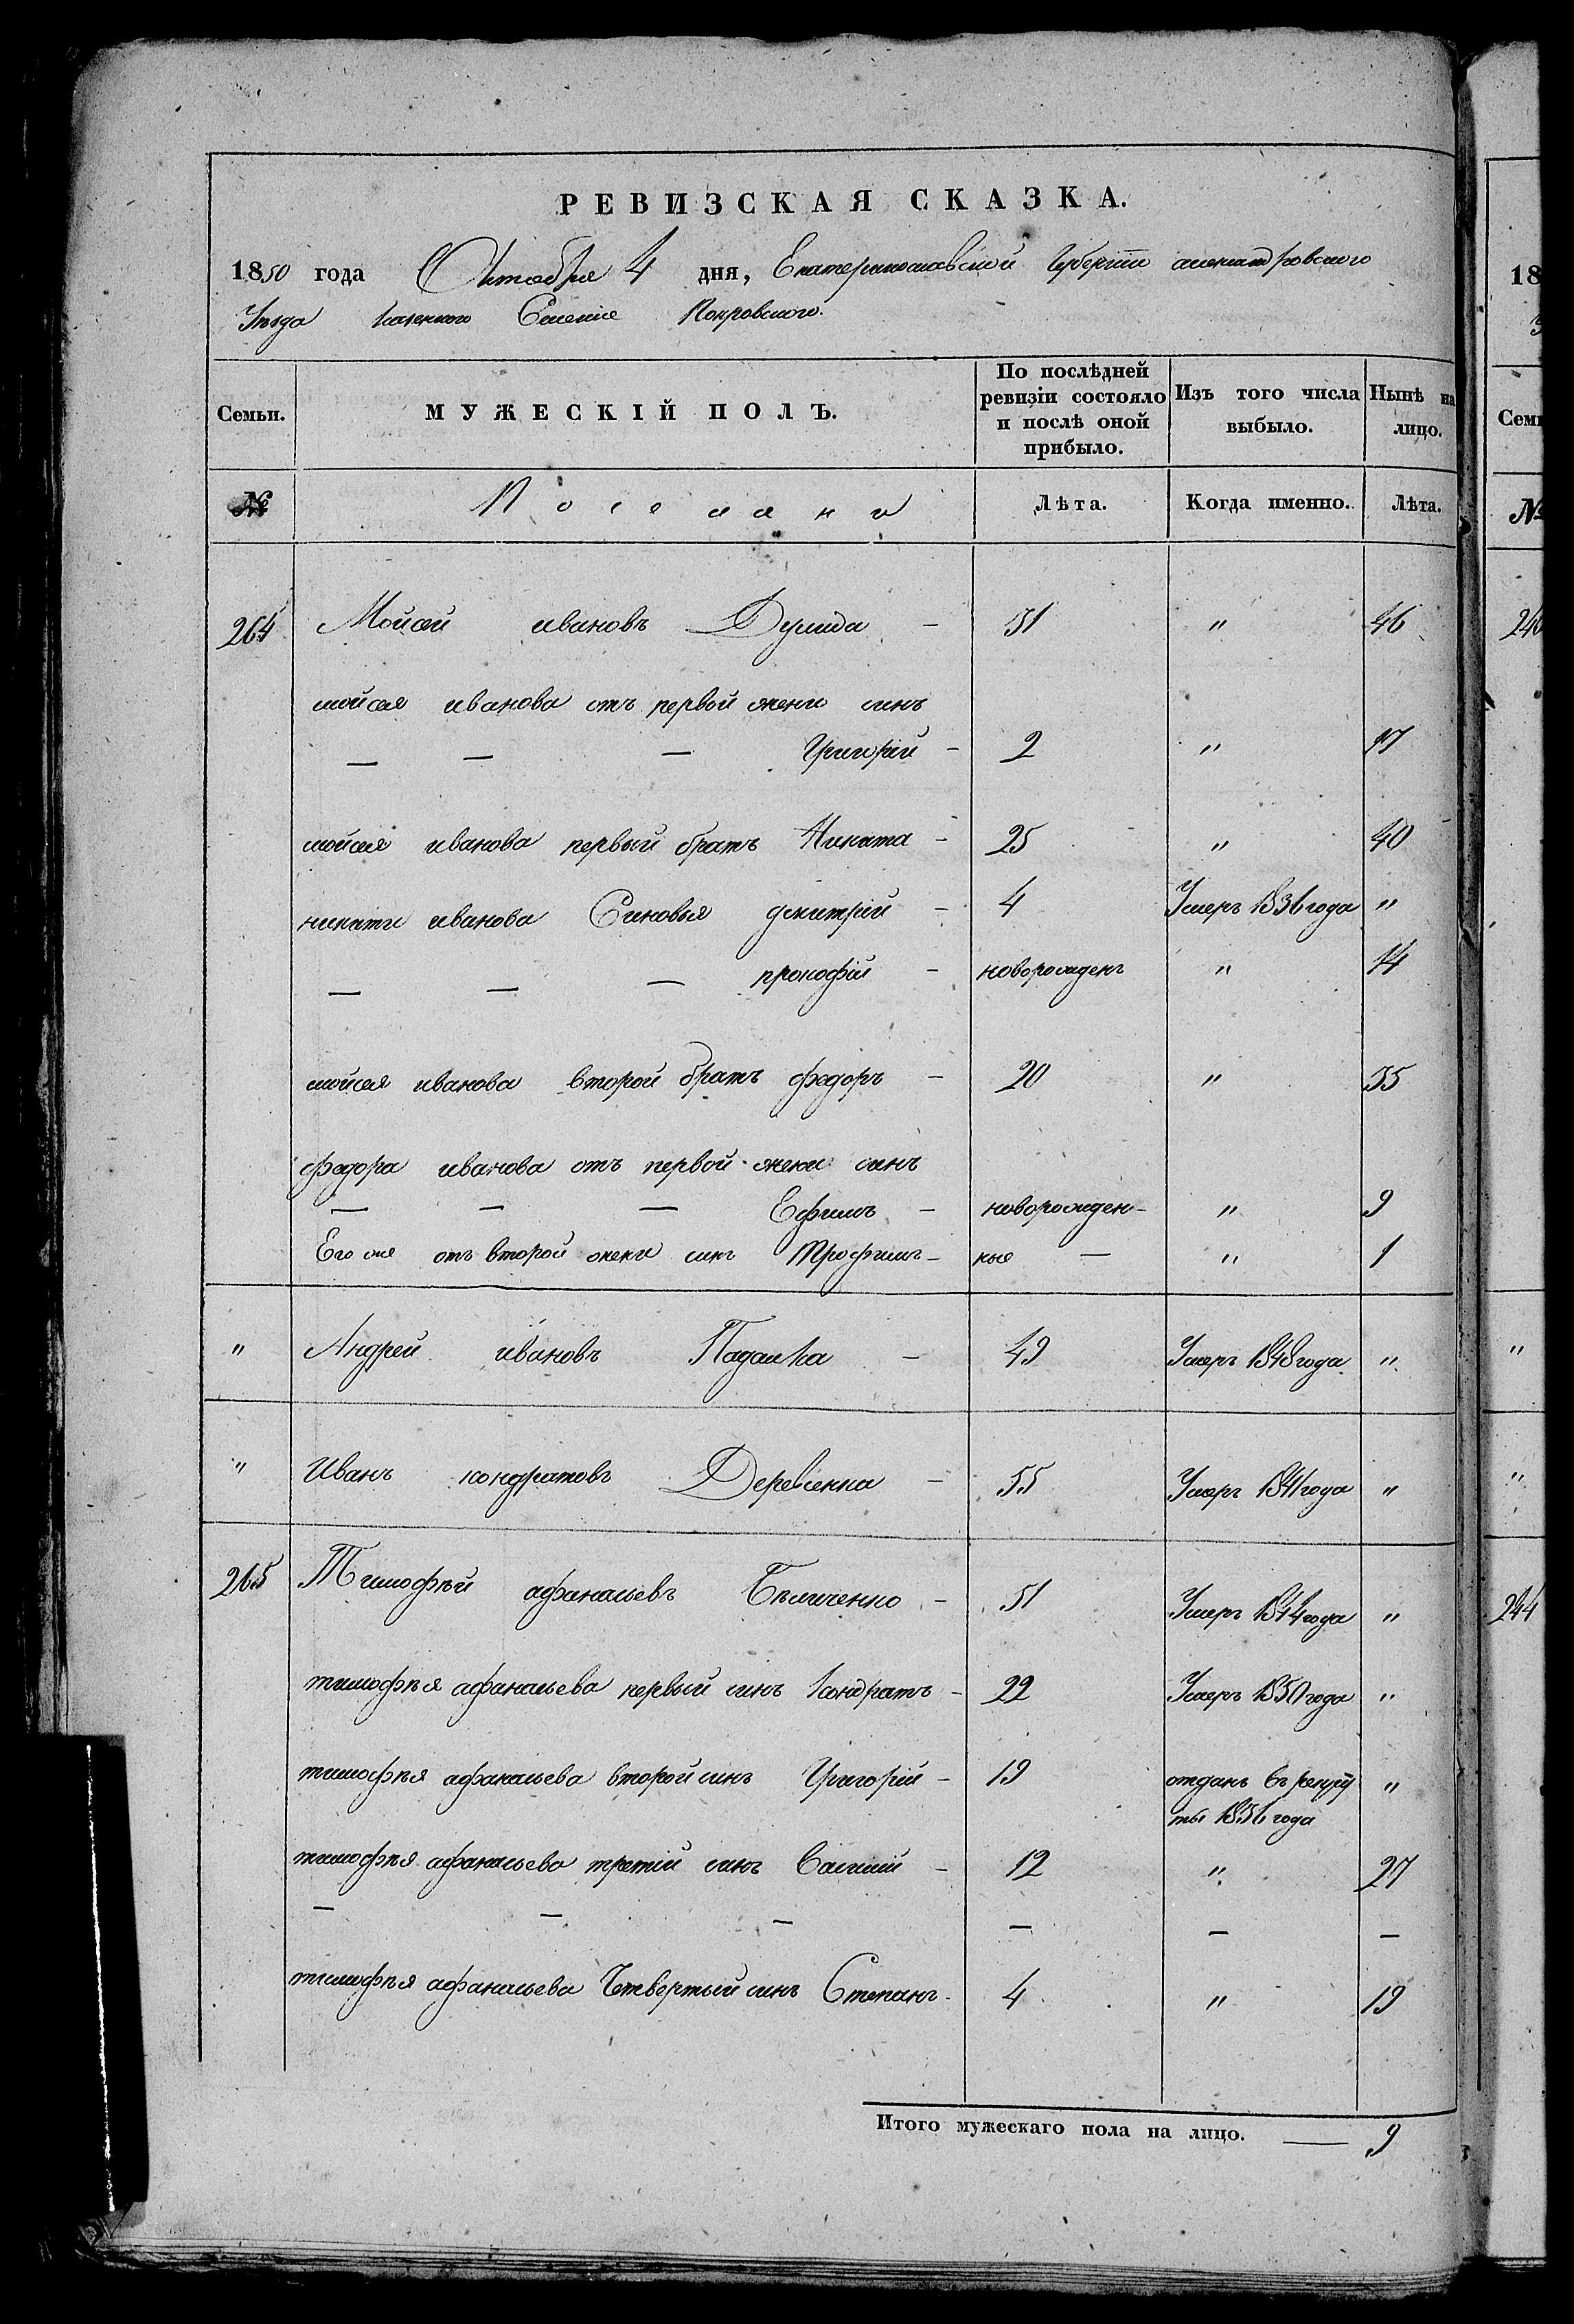 РЕВИЗСКАЯ СКАЗКА.
1850 года Октября 4 дня, Екатеринославской Губернии александровского
Уезда казенного Селенія Покровского.
Семьи. МУЖЕСКІЙ ПОЛЪ. По послѣдней ревизіи состояло и послѣ оной прибыло. Изъ того числа выбыло. Нынѣ на лицо.
№ Поселяни Лѣта. Когда именно. Лѣта.
264 Мойсей ивановъ 31 " 46
мойсея иванова отъ первой жени синъ
— — — Григорій — 2 " 17
мойсея иванова первый братъ Никита — 25 " 40
никити иванова Синовья дмитрій — 4 Умеръ 1836 года "
— — — прокофій — новорожденъ " 14
мойсея иванова второй братъ федоръ — 20 " 35
федора иванова отъ первой жени синъ
— — — Ефимъ — новорожден- " 9
Его же отъ второй жени синъ Трофимъ — ные — " 1
" Андрей ивановъ Падалка — 49 Умеръ 1848 года "
" Иванъ кондратовъ Деревенка — 55 Умеръ 1841 года "
265 Тимофѣй афанасьевъ Бѣличенко — 51 Умеръ 1844 года "
тимофѣя афанасьева первый синъ Кондратъ — 22 Умеръ 1850 года "
тимофѣя афанасьева второй синъ Григорій — 19 отданъ въ рекру
ты 1836 года "
тимофѣя афанасьева третій синъ Василий — 12 " 27
— — — — — —
тимофѣя афанасьева Четвертый синъ Степанъ 4 " 19
Итого мужескаго пола на лицо. — 9
18
Семь
№
240
"
"
244